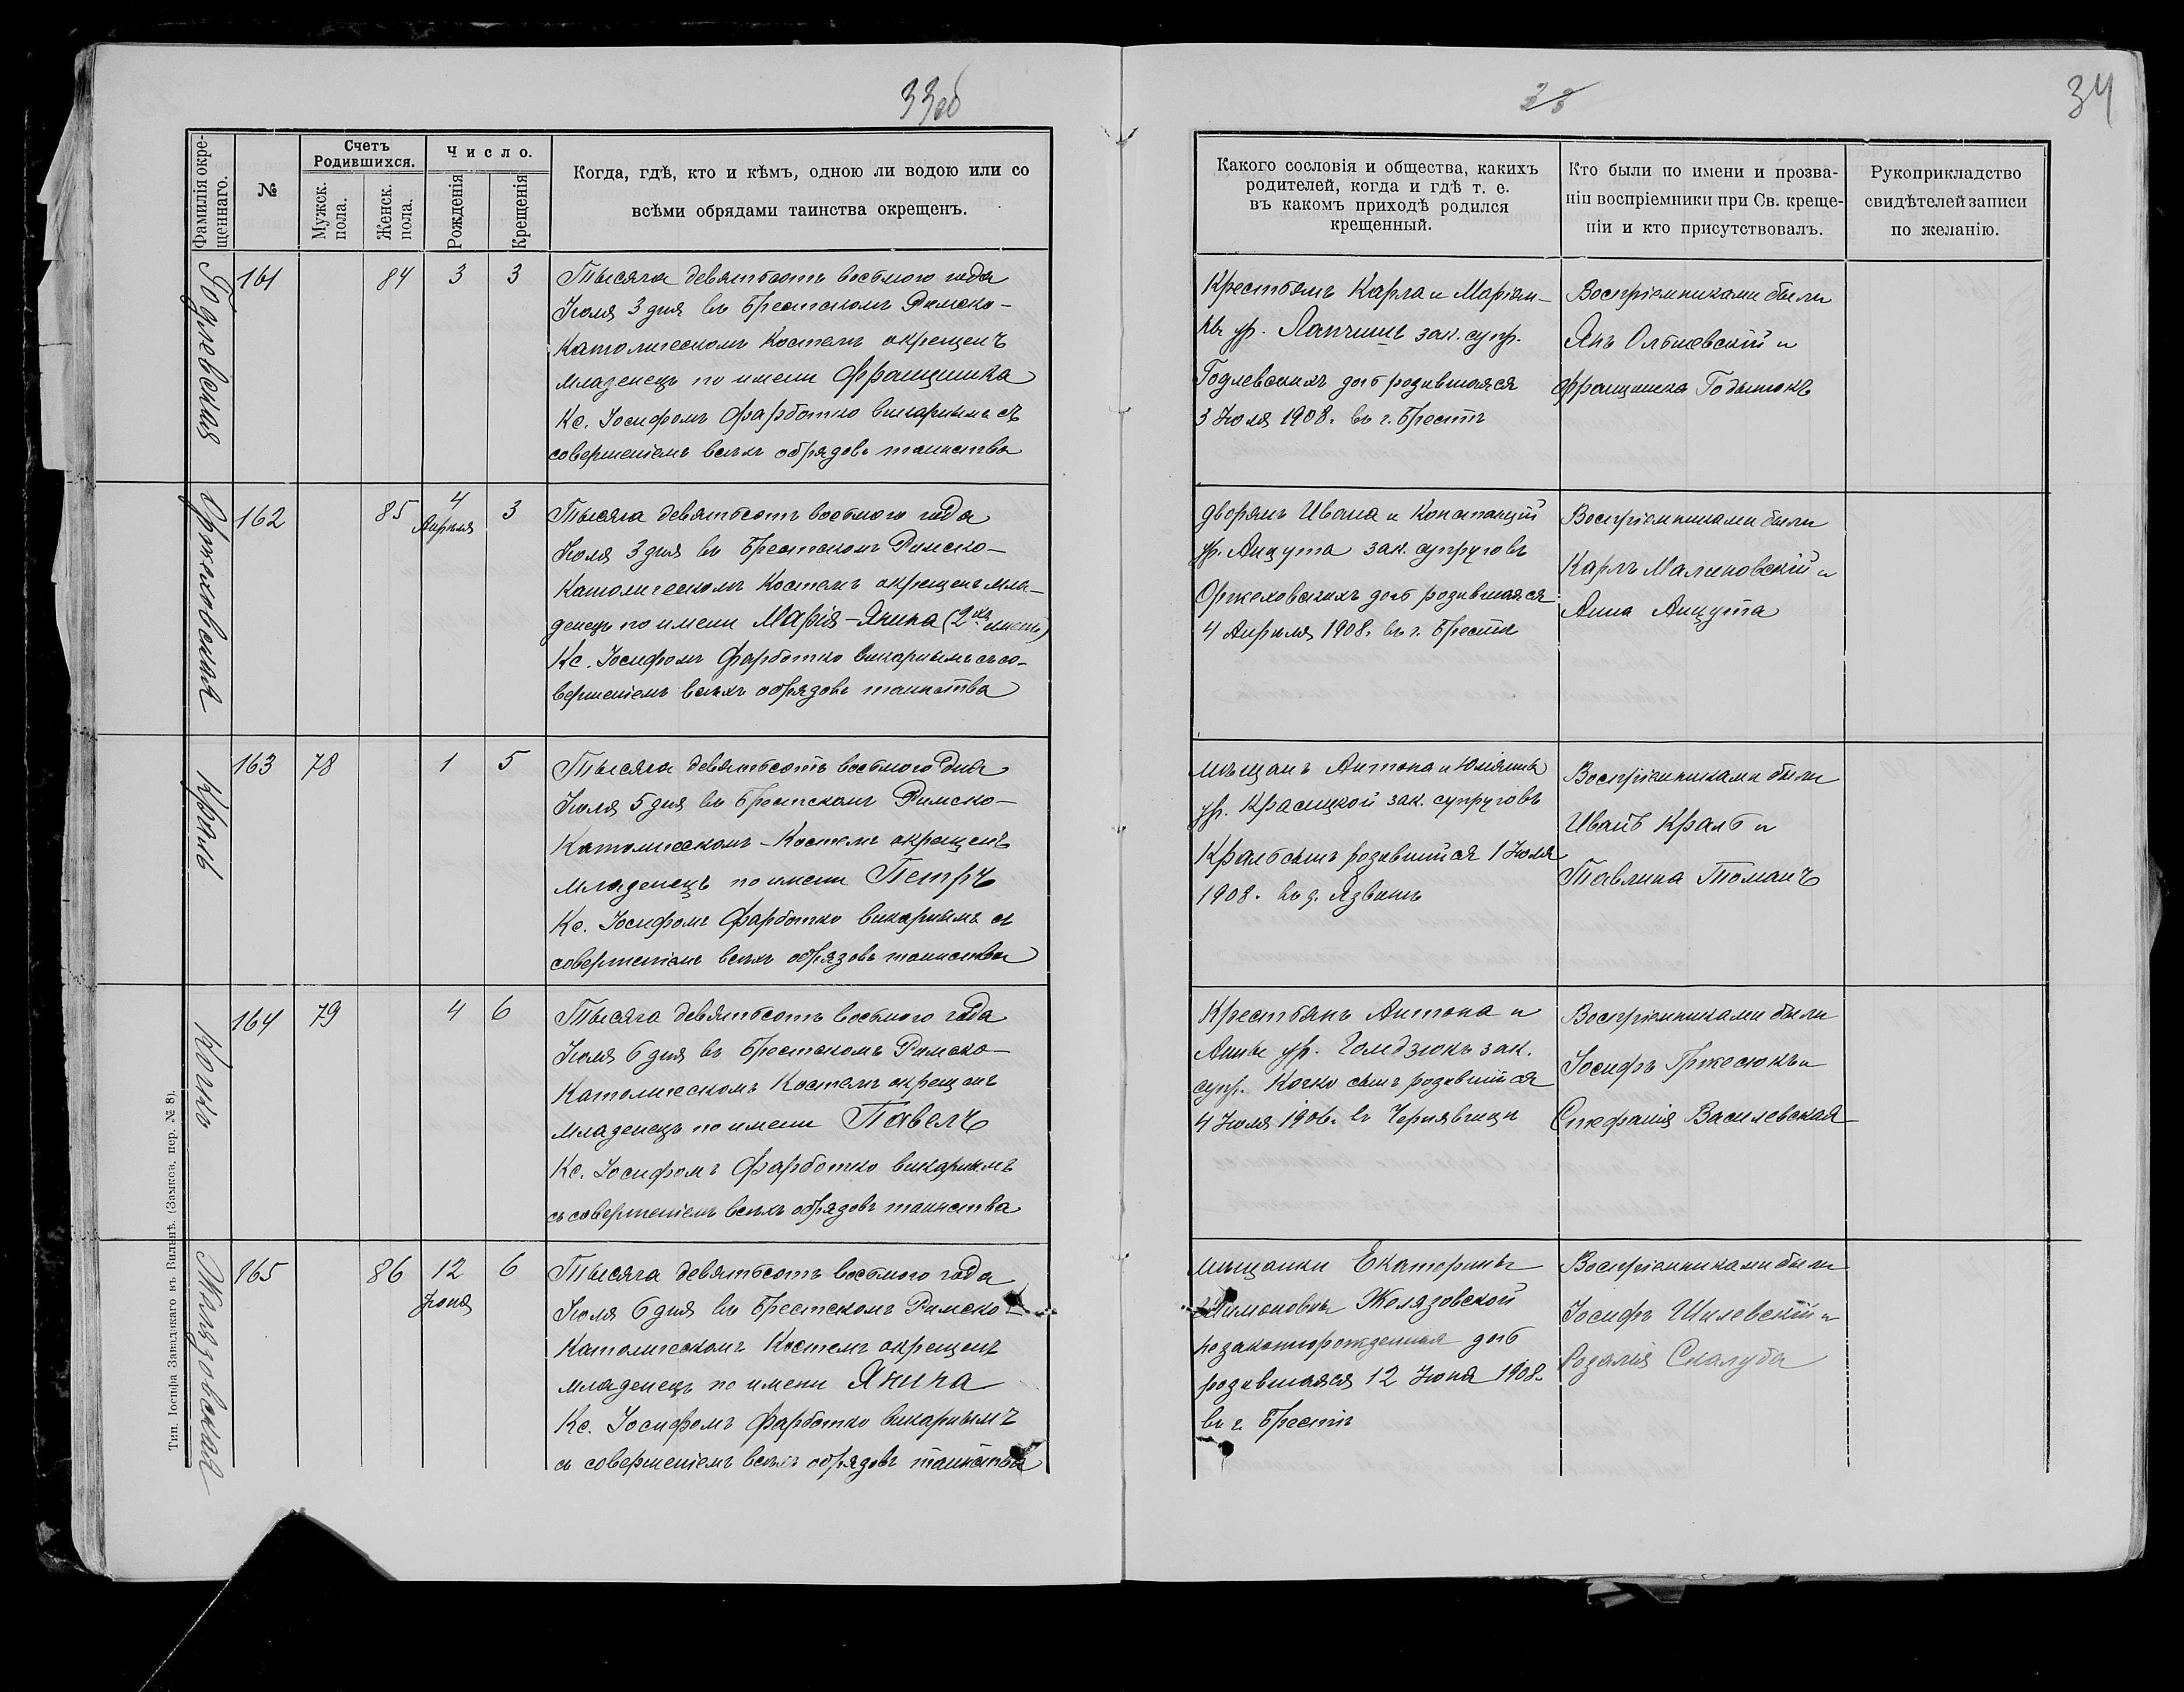 33об
Фамилія окре-
щеннаго.
№
Счетъ
Родившихся.
Мужск.
пола.
Женск.
пола.
Число.
Рожденія
Крещенія
Когда, гдѣ, кто и кѣмъ, одною ли водою или со
всѣми обрядами таинства окрещенъ.
Годлевская
161
84
3
3
Тысяча девятьсотъ восьмого года
Іюля 3 дня въ Брестскомъ Римско-
Католическомъ Костелѣ окрещенъ
младенецъ по имени Францишка
Кс. Іосифомъ Фарботко викарнымъ съ
совершеніемъ всѣхъ обрядовъ таинства
Оржеховская
162
85
4
Апрѣля
3
Тысяча девятьсотъ восьмого года
Іюля 3 дня въ Брестскомъ Римско-
Католическомъ Костелѣ окрещенъ мла-
денецъ по имени Марія-Янина (2хъ именъ)
Кс. Іосифомъ Фарботко викарнымъ съ со-
вершеніемъ всѣхъ обрядовъ таинства
Кралъ
163
78
1
5
Тысяча девятьсотъ восьмого дня
Іюля 5 дня въ Брестскомъ Римско-
Католическомъ Костелѣ окрещенъ
младенецъ по имени Петръ
Кс. Іосифомъ Фарботко викарнымъ съ
совершеніемъ всѣхъ обрядовъ таинства
Кочко
164
79
4
6
Тысяча девятьсотъ восьмого года
Іюля 6 дня въ Брестскомъ Римско-
Католическомъ Костелѣ окрещенъ
младенецъ по имени Павелъ
Кс. Іосифомъ Фарботко викарнымъ
съ совершеніемъ всѣхъ обрядовъ таинства
Желязовская
165
86
12
Іюня
6
Тысяча девятьсотъ восьмого года
Іюля 6 дня въ Брестскомъ Римско-
Католическомъ Костелѣ окрещенъ
младенецъ по имени Янина
Кс. Іосифомъ Фарботко викарнымъ
съ совершеніемъ всѣхъ обрядовъ таинства
Тип. Іосифа Завадзкаго въ Вильнѣ. (Замков. пер. № 8).
33
34
Какого сословія и общества, какихъ
родителей, когда и гдѣ т. е.
въ какомъ приходѣ родился
крещенный.
Кто были по имени и прозва-
ніи воспріемники при Св. креще-
ніи и кто присутствовалъ.
Рукоприкладство
свидѣтелей записи
по желанію.
Крестьянъ Карла и Маріан-
ны ур. Лапчинъ зак. супр.
Годлевскихъ дочь родившаяся
3 Іюля 1908. въ г. Брестѣ
Воспріемниками были
Янъ Ольшевскій и
Францишка Годынюкъ
дворянъ Ивана и Констанціи
ур. Анцута зак. супруговъ
Оржеховскихъ дочь родившаяся
4 Апрѣля 1908. въ г. Брестѣ
Воспріемниками были
Карлъ Малиновскій и
Анна Анцута
мѣщанъ Антона и Юліанны
ур. Красицкой зак. супруговъ
Краль сынъ родившійся 1 Іюля
1908. въ д. Язвинъ
Воспріемниками были
Иванъ Краль и
Павлина Томанъ
Крестьянъ Антона и
Анны ур. Голедзюкъ зак.
супр. Кочко сынъ родившійся
4 Іюля 1906. въ Чернявчицы
Воспріемниками были
Іосифъ Гржесюкъ и
Стефанія Василевская
мѣщанки Екатерины
Шимоновны Желязовской
незаконнорожденная дочь
родившаяся 12 Іюня 1908.
въ г. Брестѣ
Воспріемниками были
Іосифъ Шилевскій и
Розалія Скалуба